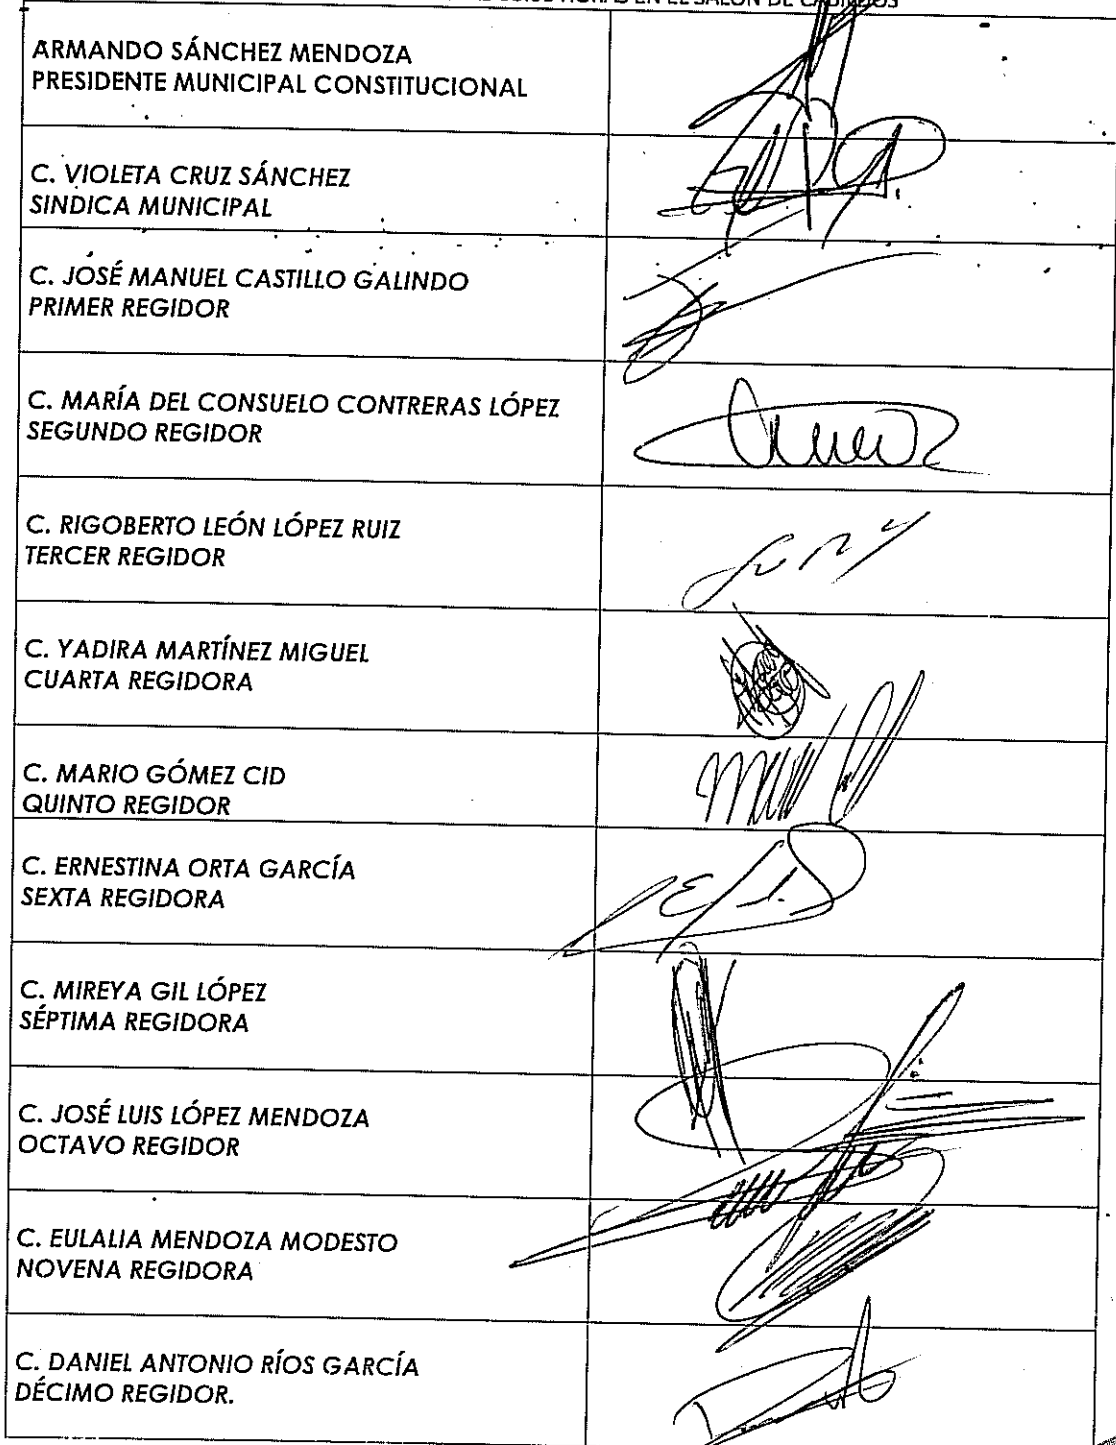 HORAS EN EL SALÓN DE CABILDOS
ARMANDO SÁNCHEZ MENDOZA
PRESIDENTE MUNICIPAL CONSTITUCIONAL
C. VIOLETA CRUZ SÁNCHEZ
SINDICA MUNICIPAL
C. JOSÉ MANUEL CASTILLO GALINDO
PRIMER REGIDOR
C. MARÍA DEL CONSUELO CONTRERAS LÓPEZ
SEGUNDO REGIDOR
C. RIGOBERTO LEÓN LÓPEZ RUIZ
TERCER REGIDOR
C. YADIRA MARTÍNEZ MIGUEL
CUARTA REGIDORA
C. MARIO GÓMEZ CID
QUINTO REGIDOR
C. ERNESTINA ORTA GARCÍA
SEXTA REGIDORA
C. MIREYA GIL LÓPEZ
SÉPTIMA REGIDORA
C. JOSÉ LUIS LÓPEZ MENDOZA
OCTAVO REGIDOR
C. EULALIA MENDOZA MODESTO
NOVENA REGIDORA
C. DANIEL ANTONIO RÍOS GARCÍA
DÉCIMO REGIDOR.